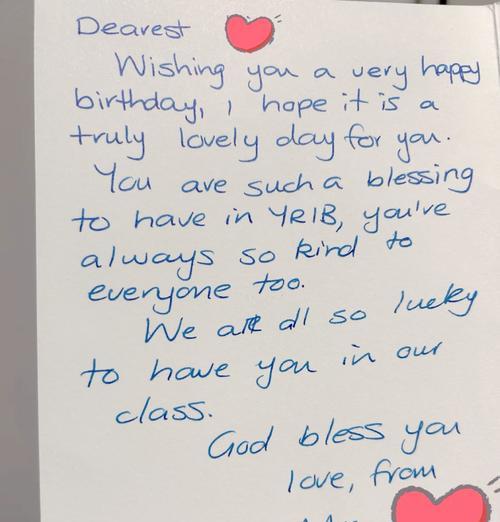 Dearest
Wishing you a very happy
birthday, I hope it is a
truly lovely day for you.
You are such a blessing
to have in YR1B, you've
always so kind to
everyone too.
We are all so lucky
to have you in our
class.
God bless you
love, from